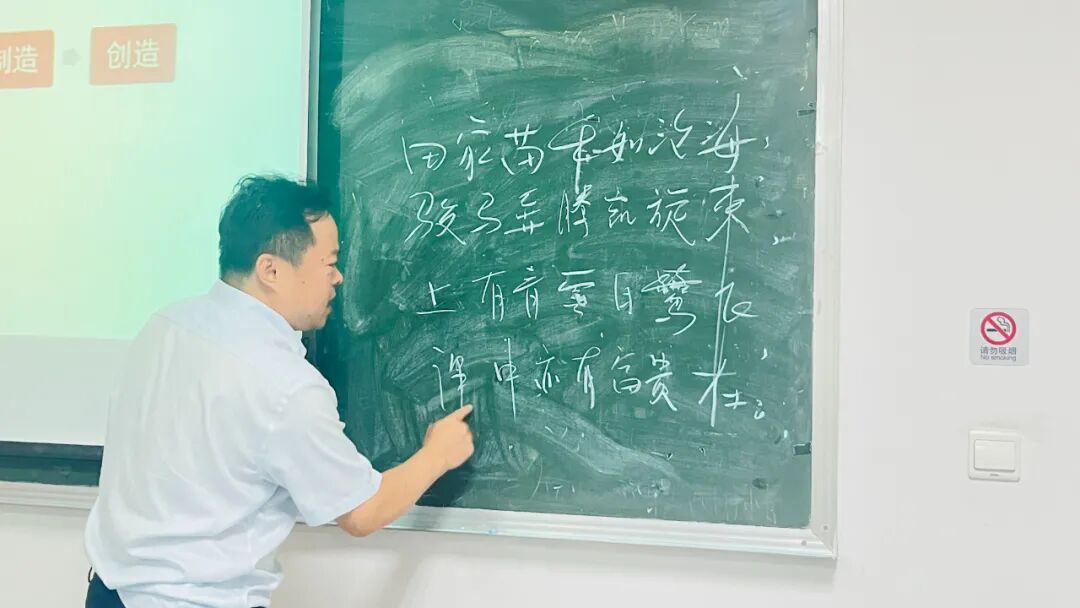 制造 创造
田家苗本如沧海，
骏马奔腾凯旋来
上有音云日鹭飞
课中亦有富贵在；
请勿吸烟
No smoking